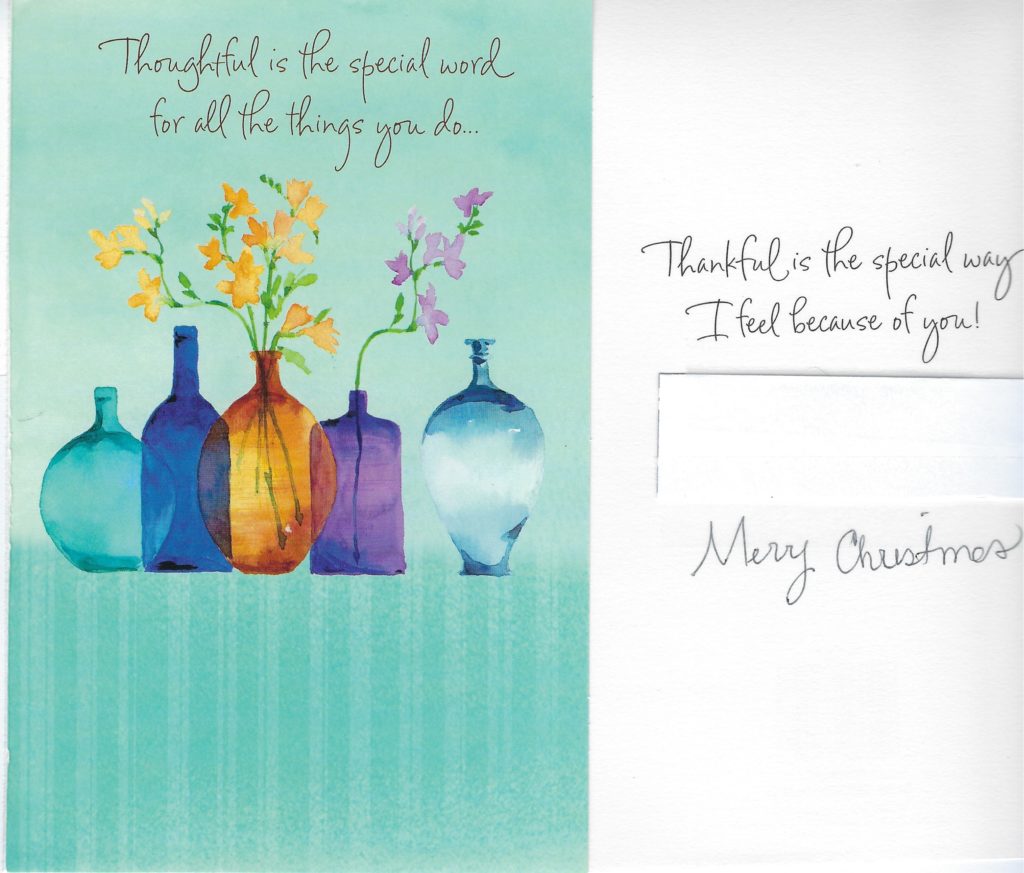 Thoughtful is the special word
for all the things you do...
Thankful is the special way
I feel because of you!
Merry Christmas